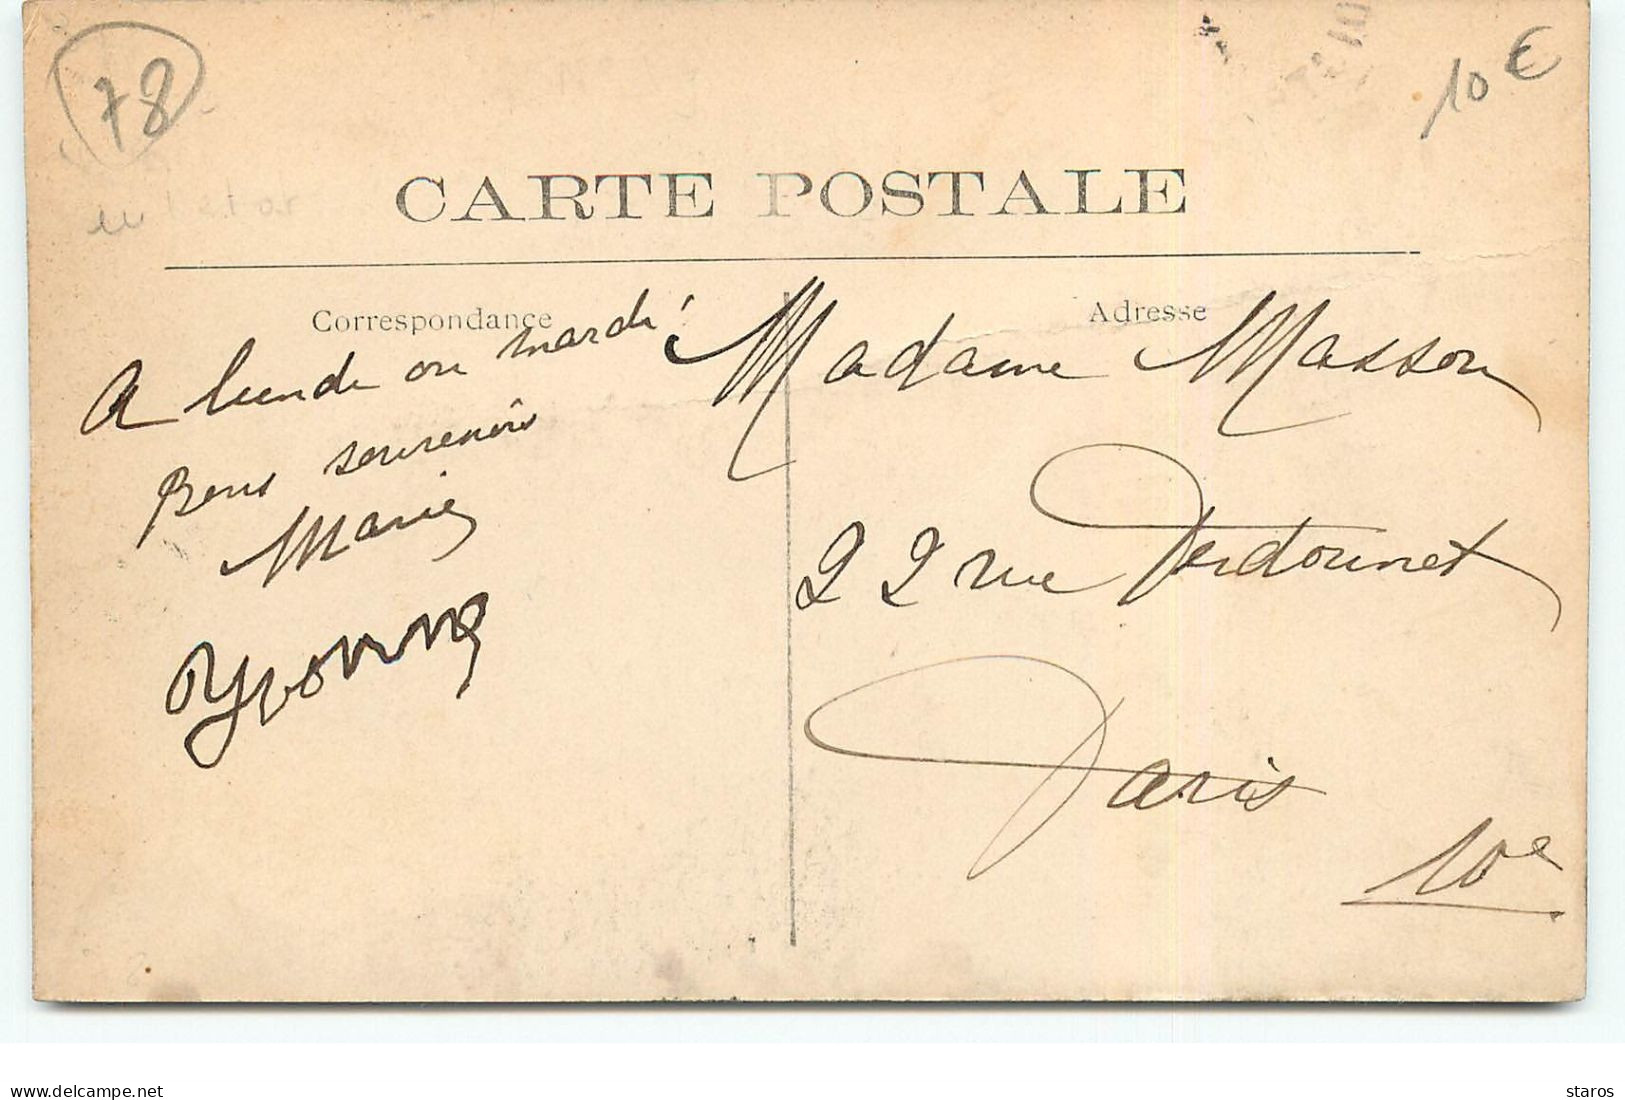 78
10 €
CARTE POSTALE
Correspondance
Adresse
A lundi ou mardi
Bons souvenirs
Marie
Yvonne
Madame Masson
22 rue Perdonnet
Paris
10e
www.delcampe.net
staros